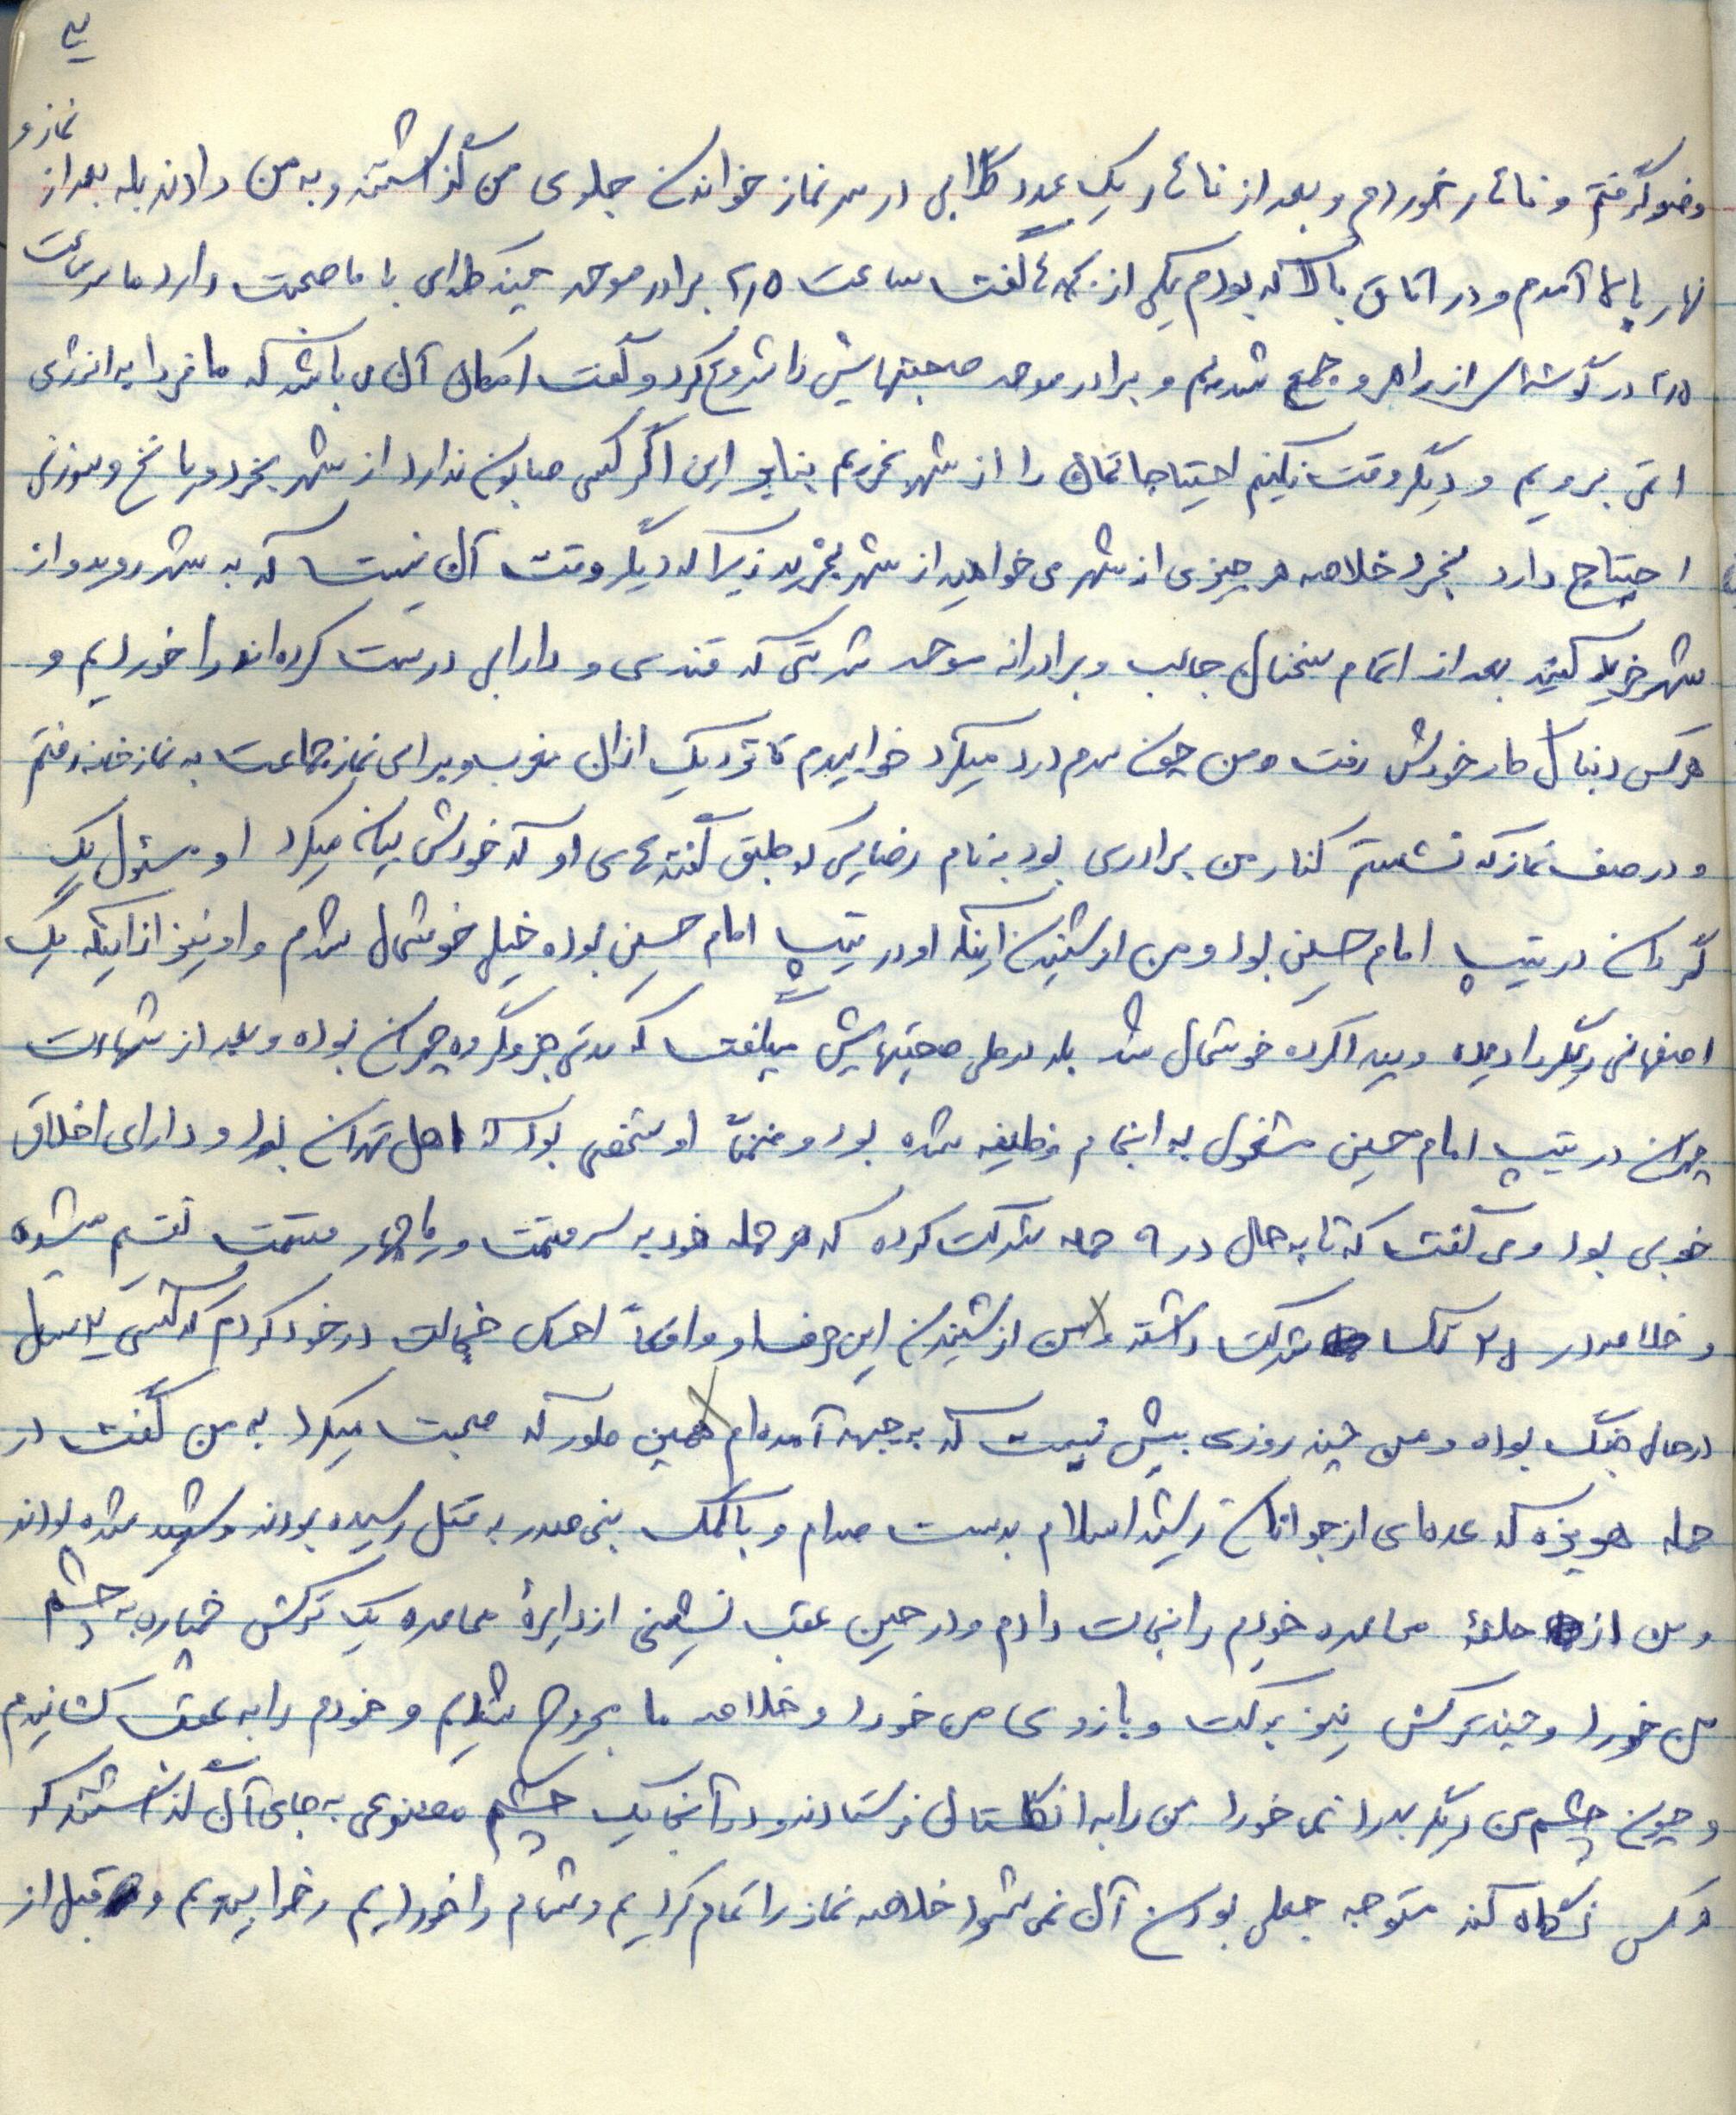 نماز و
وضو گرفتم و ناهار خوردم و بعد از ناهار یک عدد گلابی در سر نماز خواندن جلوی من گذاشتند و به من دادند بله بعد از
نهار بالا آمدم و در اتاق بالا که بودم یکی از بچه‌ها گفت ساعت ۲/۵ برادر موحد چند کلمه‌ای با ما صحبت دارد ما سر ساعت
۲/۵ در گوشه‌ای از راهرو جمع شدیم و برادر موحد صحبتهایش را شروع کرد و گفت امکان آن می باشد که ما فردا به انرژی
اتمی برویم و دیگر وقت نکنیم احتیاجاتمان را از شهر بخریم بنابر این اگر کسی صابون ندارد از شهر بخرد و یا نخ و سوزنی
احتیاج دارد بخرد خلاصه هر چیزی از شهر می خواهید از شهر بخرید زیرا که دیگر وقت آن نیست که به شهر روید و از
شهر خرید کنید بعد از اتمام سخنان جالب و برادرانه موحد شربتی که قندی و دارابی درست کرده‌اند را خوردیم و
هر کس دنبال کار خودش رفت و من چون سرم درد میکرد خوابیدم تا نزدیک اذان مغرب و برای نماز جماعت به نمازخانه رفتم
و در صف نماز که نشستم کنار من برادری بود به نام رضایی که طبق گفته‌های او که خودش بیان میکرد او مسئول یک
گردان در تیپ امام حسین بود و من از شنیدن اینکه او در تیپ امام حسین بوده خیلی خوشحال شدم و او نیز از اینکه یک
اصفهانی دیگر را دیده و پیدا کرده خوشحال شد بله در طی صحبتهایش میگفت که مدتی جزو گروه چمران بوده و بعد از شهادت
چمران در تیپ امام حسین مشغول به انجام وظیفه شده بود و ضمناً او شخصی بود که اهل تهران بود و دارای اخلاق
خوبی بود و می گفت که تا به حال در ۹ حمله شرکت کرده که هر حمله خود به سه قسمت و یا چهار قسمت تقسیم میشده
و خلاصه در ۲۵ تک شرکت داشته و من از شنیدن این حرف او واقعاً احساس خجالت در خود کردم که کسی سال
در حال جنگ بوده و من چند روزی بیش نیست که به جبهه آمده‌ام همین طور که صحبت میکرد به من گفت در
حمله هویزه که عده‌ای از جوانان رشید اسلام بدست صدام و با کمک بنی صدر به قتل رسیده بودند و شهید شده بودند
و من از حلقهٔ محاصره خودم را نجات دادم و در حین عقب نشینی از دایرهٔ محاصره یک ترکش خمپاره به چشم
من خورد و چند ترکش نیز به کت و بازوی من خورد و خلاصه ما مجروح شدیم و خودم را به عقب کشانیدم
و چون چشم من دیگر بدرد نمی خورد من را به انگلستان فرستادند و در آنجا یک چشم مصنوعی به جای آن گذاشتند که
هر کس نگاه کند متوجه جعلی بودن آن نمی شود خلاصه نماز را تمام کردیم و شام را خوردیم و خوابیدیم و قبل از